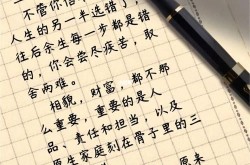 不管你信
人生的另一半选错了，
往后余生每一步都是错
的，你会尝尽疾苦，取
舍两难。
相貌，财富，都不那
么重要，重要的是人
品、责任和担当，以及
原生家庭刻在骨子里的三
原来